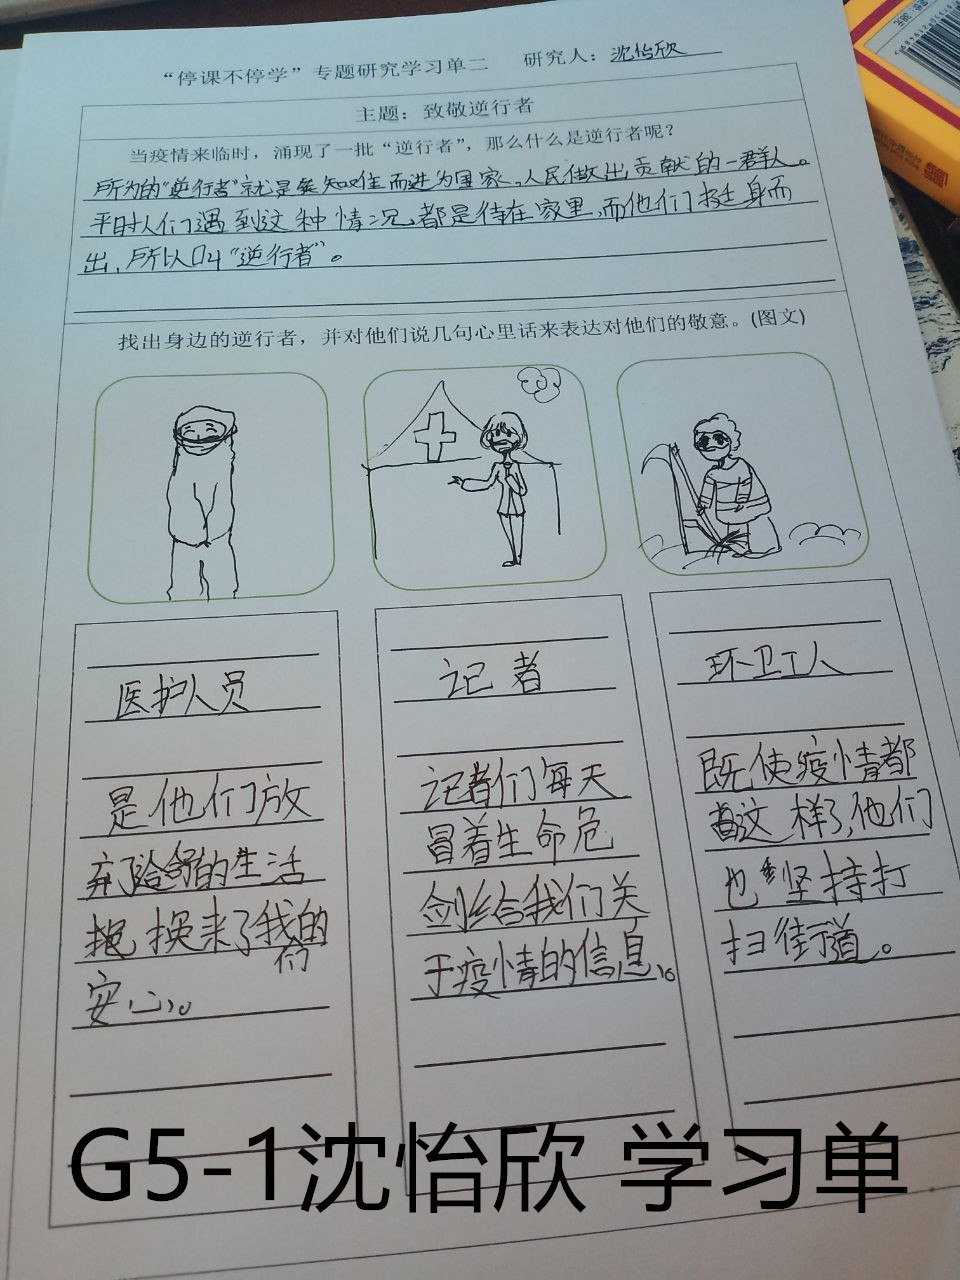 “停课不停学”专题研究学习单二 研究人：沈怡欣
主题：致敬逆行者
当疫情来临时，涌现了一批“逆行者”，那么什么是逆行者呢？
所为的“逆行者”就是 知 往而进为国家、人民做出贡献的一群人。
平时人们遇到这种情况，都是待在家里，而他们挺身而
出，所以叫“逆行者”。
找出身边的逆行者，并对他们说几句心里话来表达对他们的敬意。(图文)
医护人员
是他们放
弃了 的生活
换来了我们的
安心。
记者
记者们每天
冒着生命危
剑给我们关
于疫情的信息。
环卫工人
既使疫情都
这样了，他们
也坚持打
扫街道。
G5-1沈怡欣 学习单